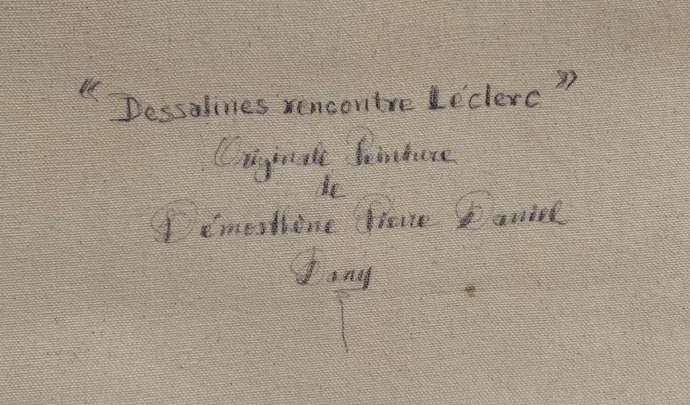 « Dessalines rencontre Léclerc »
Originale Peinture
de
Démosthène Pierre Daniel
Dany